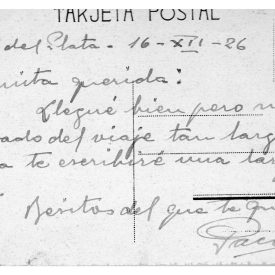 TARJETA POSTAL
del Plata - 16 - XII - 26
querida:
Llegué bien pero
del viaje tan larg
a te escribiré una lar
Besitos del que te qu